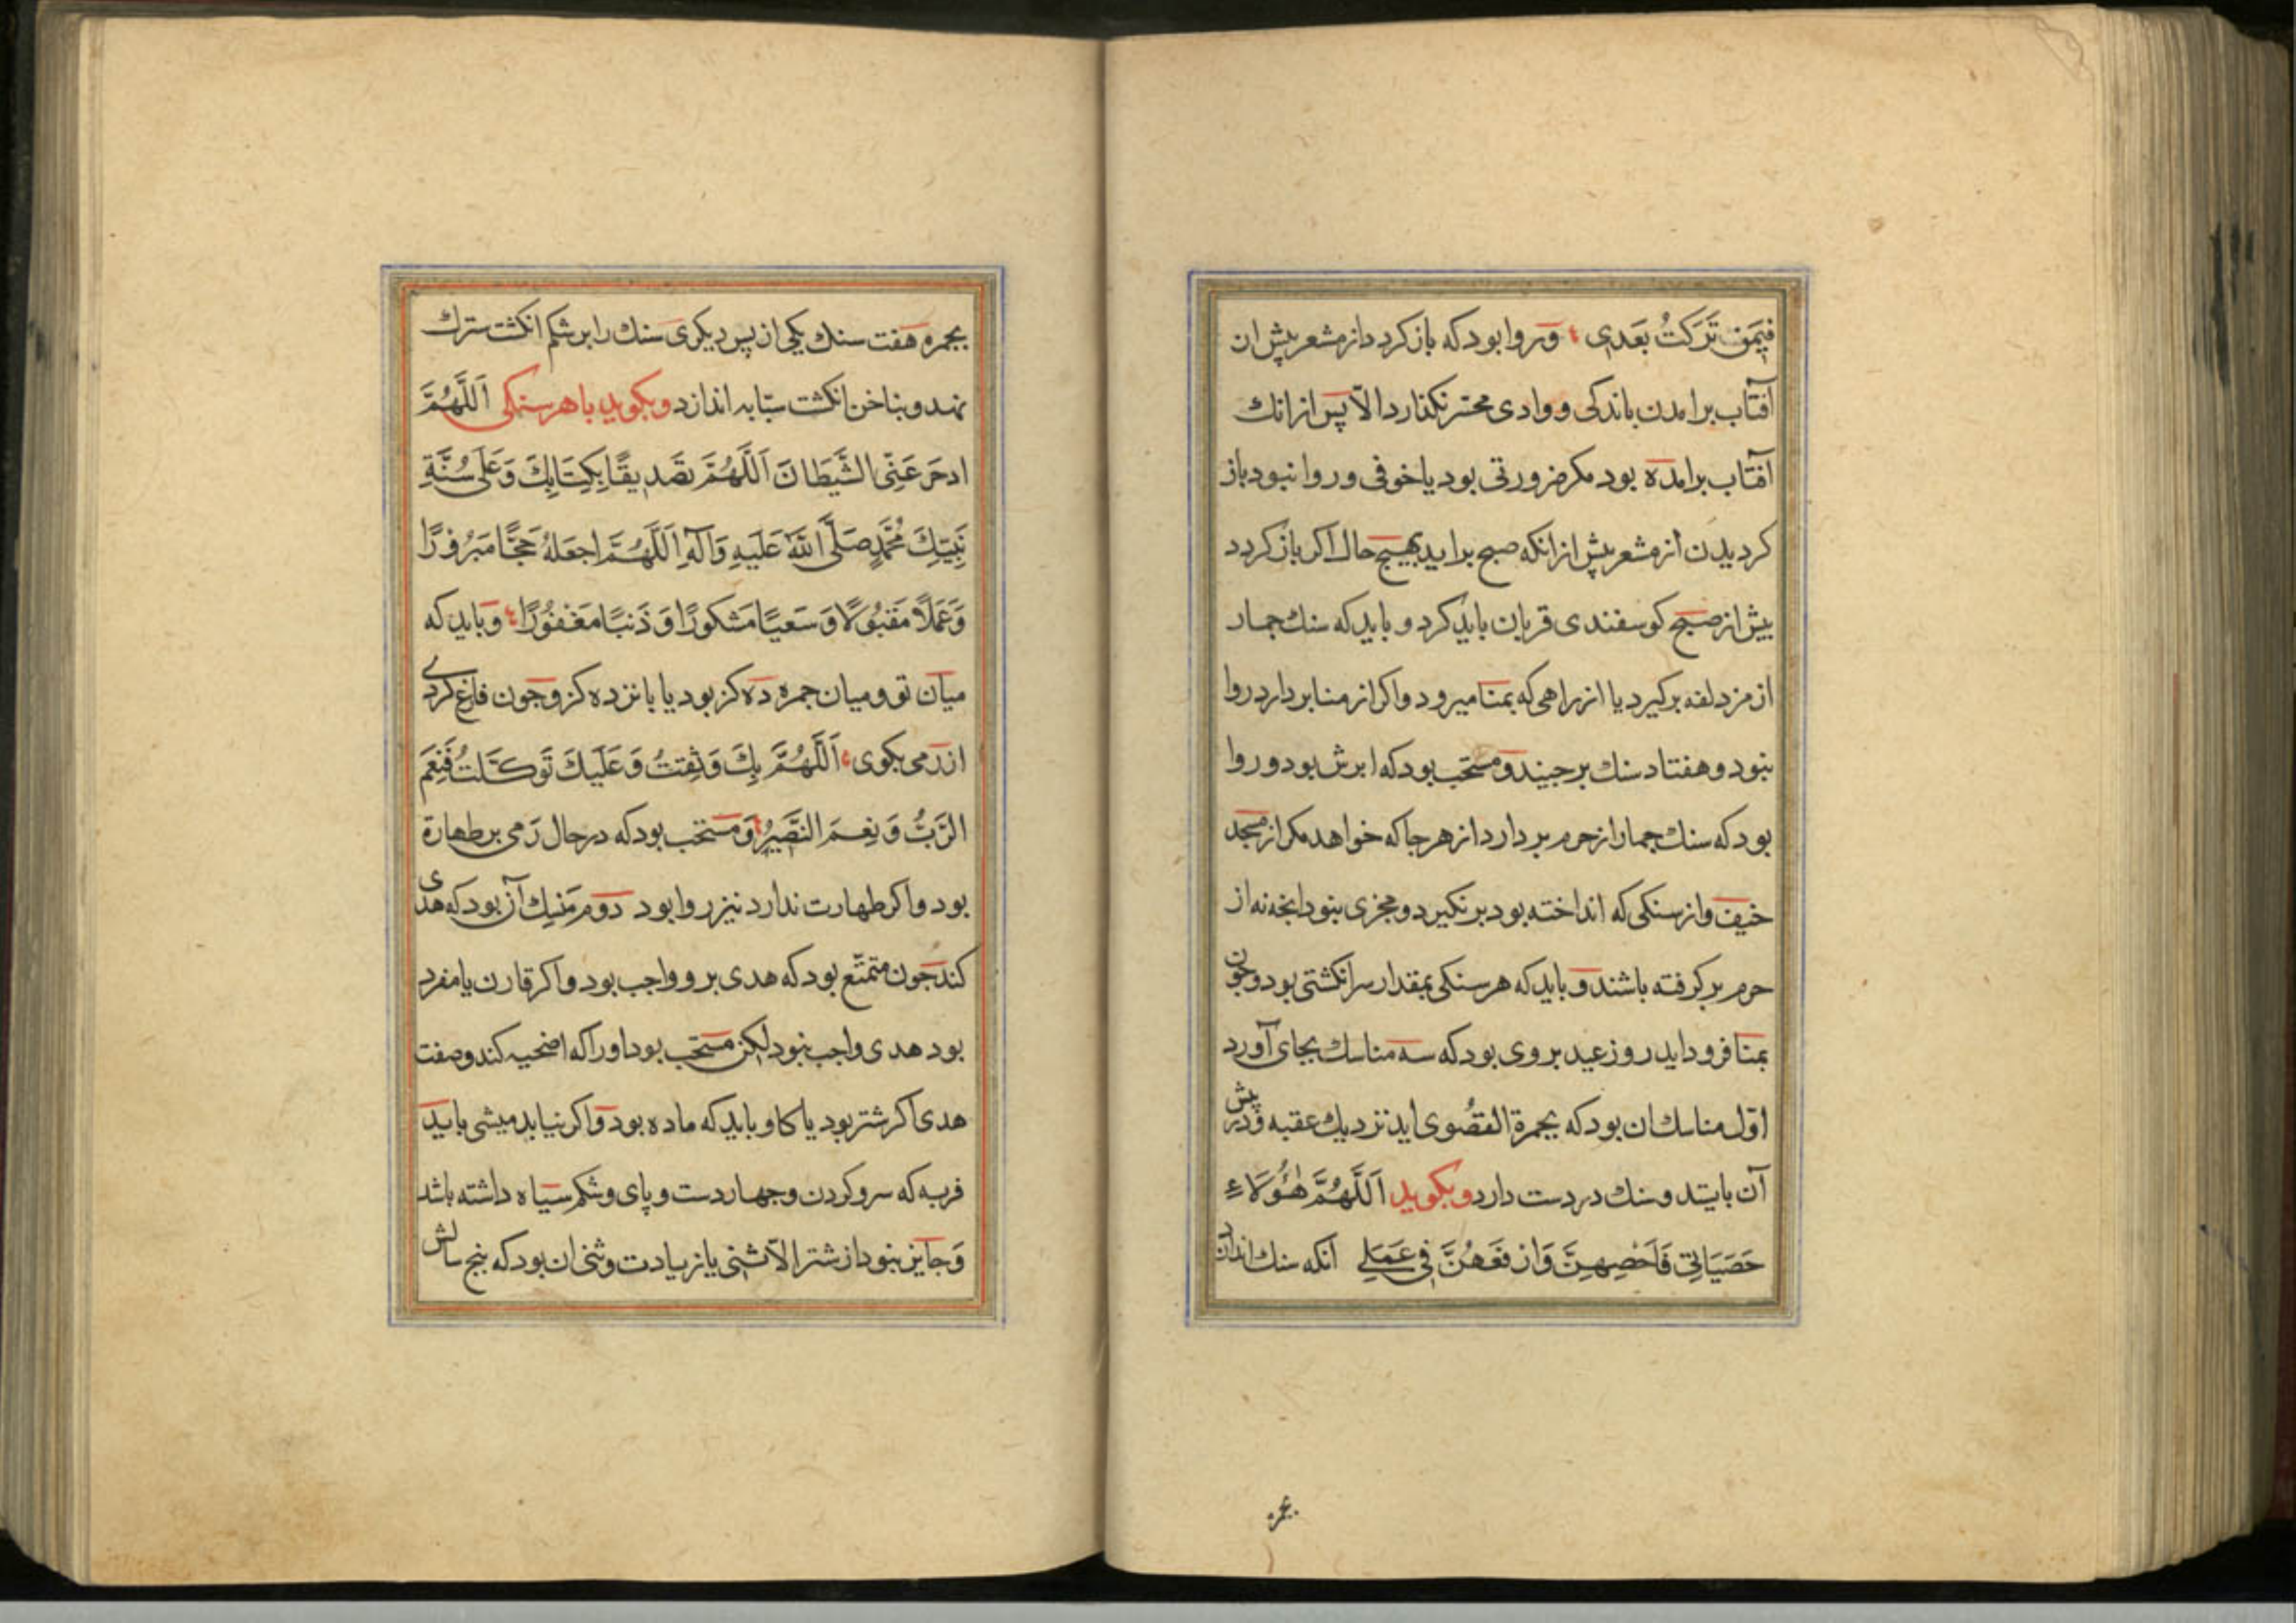 فِيمَن تَرَكتُ بَعدِى وروا بود که باز کردد از مشعر پیش ان
آفتاب برامدن باندکی و وادی محسّر نکذارد الّا پس از انك
آفتاب برامده بود مکر ضرورتی بود یا خوفی و روا نبود باز
کردیدن از مشعر پیش از انکه صبح براید بهیچ حال اکر باز کردد
پیش از صبح کوسفندی قربان باید کرد و باید که سنك جمار
از مزدلفه برکیرد یا از راهی که بمنا میرود و اکر از منا بردارد روا
نبود و هفتاد سنك برچیند و مستحب بود که ابرش بود و روا
بود که سنك جمار از حرم بردارد از هر جا که خواهد مکر از مسجد
خیف و از سنکی که انداخته بود برنکیرد و مجزی نبود انچه نه از
حرم برکرفته باشند و باید که هر سنکی بمقدار سر انکشتی بود و چون
بمنا فرود اید روز عید بر وی بود که سه مناسك بجای آورد
اوّل مناسك ان بود که بجمرة القصُوی اید نزدیك عقبه و در پیش
آن بایستد و سنك در دست دارد و بکوید اَللَّهُمَّ هٰؤُلَاءِ
حَصَيَاتِي فَاَحْصِهِنَّ وَارفَعهُنَّ فِي عَمَلِي انکه سنك اندازد
بجمره
بجمره هفت سنك یکی از پس دیکری سنك را بر شکم انکشت سترك
نهد و بناخن انکشت سبّابه اندازد و بکوید با هر سنکی اَللَّهُمَّ
ادحَر عَنِّی الشَّیطَانَ اَللَّهُمَّ تصَدِیقًا بِکِتَابِكَ وَعَلَی سُنَّةِ
نَبِیِّكَ مُحَمَّدٍ صَلَّی اللّٰهُ عَلَیهِ وَآلِهِ اَللَّهُمَّ اجعَلهُ حَجًّا مَبرُورًا
وَعَمَلًا مَقبُولًا وَسَعیًا مَشکورًا وَذَنبًا مَغفُورًا وباید که
میان تو و میان جمره ده کز بود یا پانزده کز و چون فارغ کردی
از رمی بکوی اَللَّهُمَّ بِكَ وَثِقتُ وَعَلَیكَ تَوَکَّلتُ فَنِعمَ
الرَّبُّ وَنِعمَ النَّصِیرُ و مستحب بود که در حال رَمی بر طهارة
بود و اکر طهارت ندارد نیز روا بود دوم مَنسِك آن بود که هدی
کند چون متمتّع بود که هدی بر و واجب بود و اکر قارن یا مفرد
بود هدی واجب نبود لیکن مستحب بود او را که اضحیه کند و صفت
هدی اکر شتر بود یا کاو باید که ماده بود و اکر نیابد میشی باید
فربه که سر و کردن و چهار دست و پای و شکم سیاه داشته باشد
وَجایز نبود از شتر الّا ثنی یا زیادت و ثنی ان بود که پنج سالش